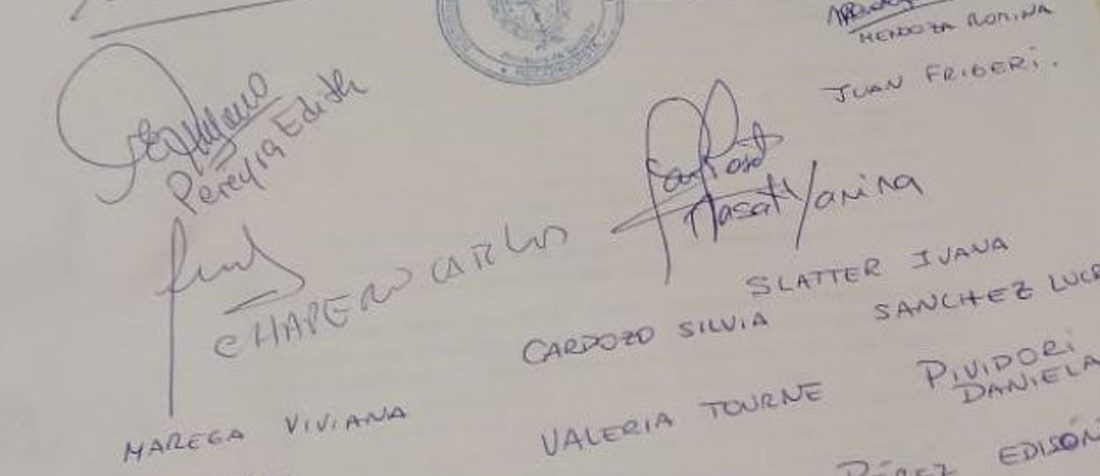 MENDOZA ROMINA
JUAN FRIBERI.
Pereyra Edith
Masat Yanina
CHAPERO CARLOS
SLATTER IVANA
SANCHEZ
CARDOZO SILVIA
PIVIDORI
DANIELA
MAREGA VIVIANA
VALERIA TOURNE
PÉREZ EDISON